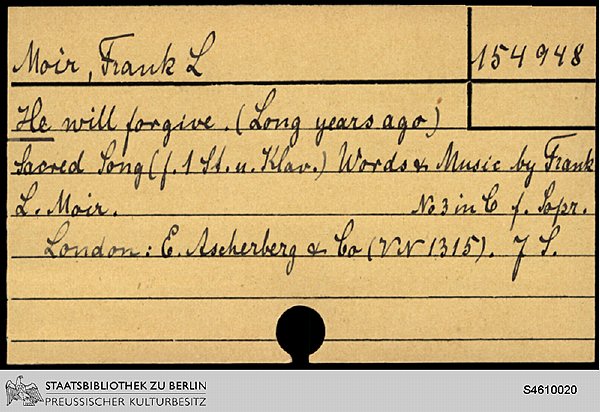 Moir, Frank L
154948
He will forgive. (Long years ago)
Sacred Song (f. 1 St. u. Klav.) Words & Music by Frank
L. Moir. No 3 in C f. Sopr.
London: E. Ascherberg & Co (VN 1315). 7 S.
STAATSBIBLIOTHEK ZU BERLIN
PREUSSISCHER KULTURBESITZ
S4610020